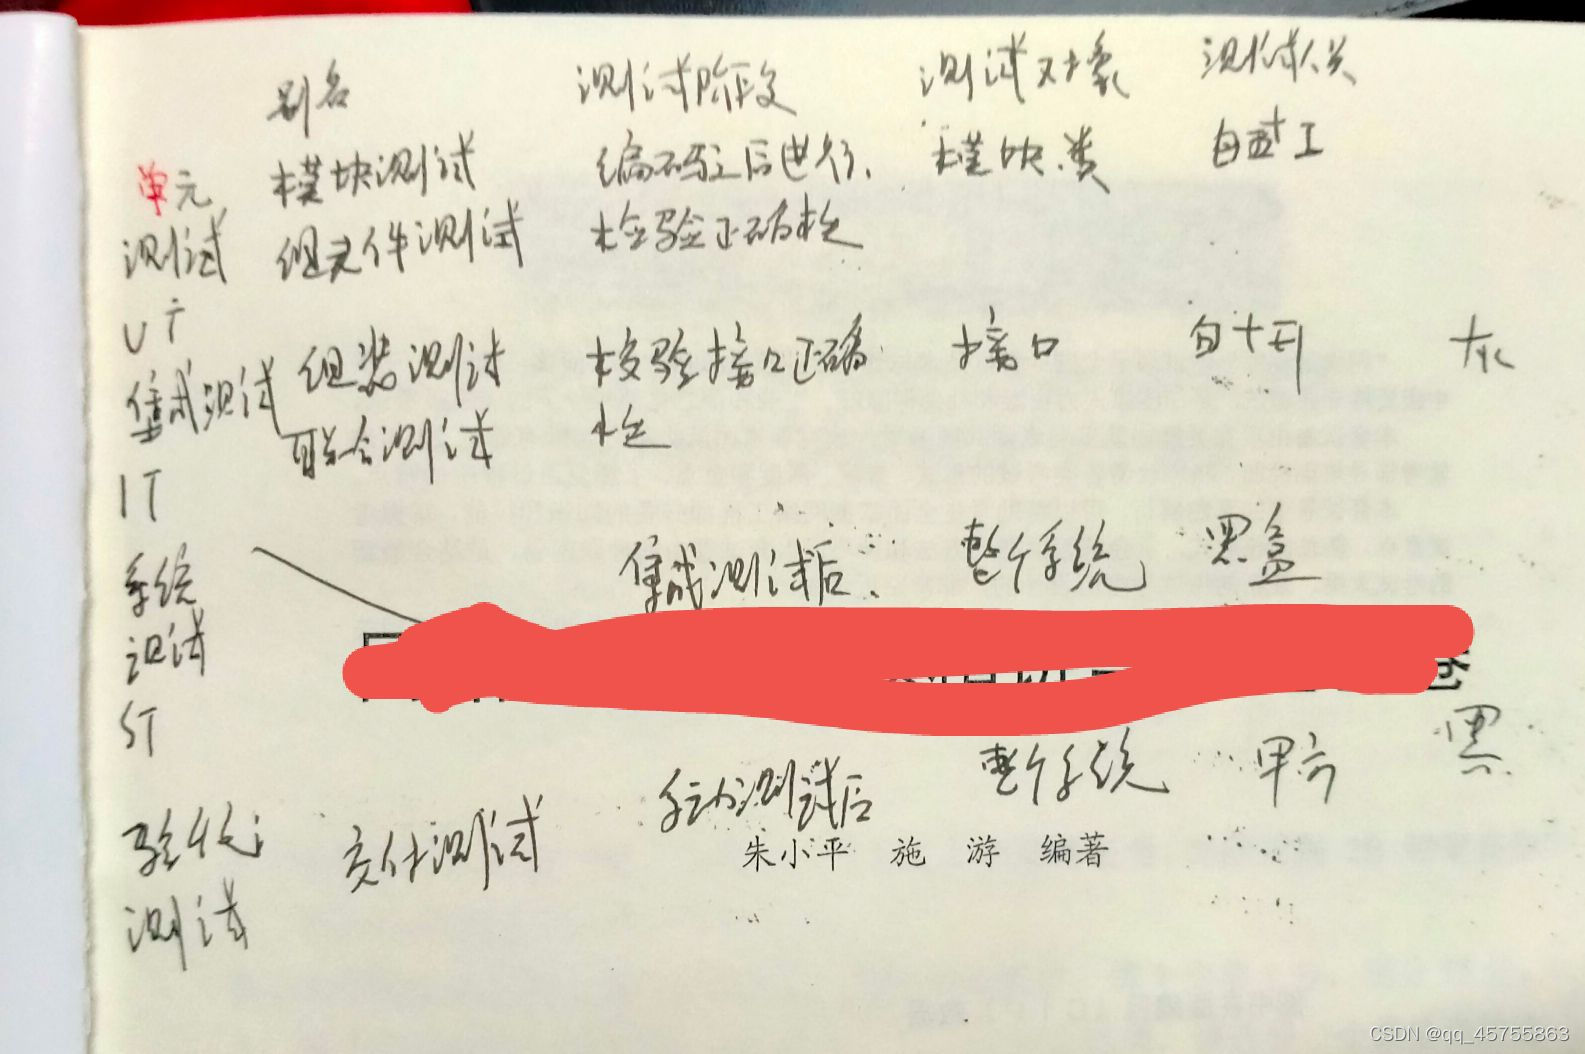 别名 测试阶段 测试对象 测试人员
单元 模块测试 编码之后进行, 模块.类 白盒+工
测试 组件测试 检验正确性
UT
集成测试 组装测试 校验接口正确 接口 白+开 灰
联合测试 性
IT
系统 集成测试后. 整个系统 黑盒
测试
ST
整个系统 甲方 黑
验收 交付测试 系统测试后
朱小平 施 游 编著
测试
CSDN @qq_45755863